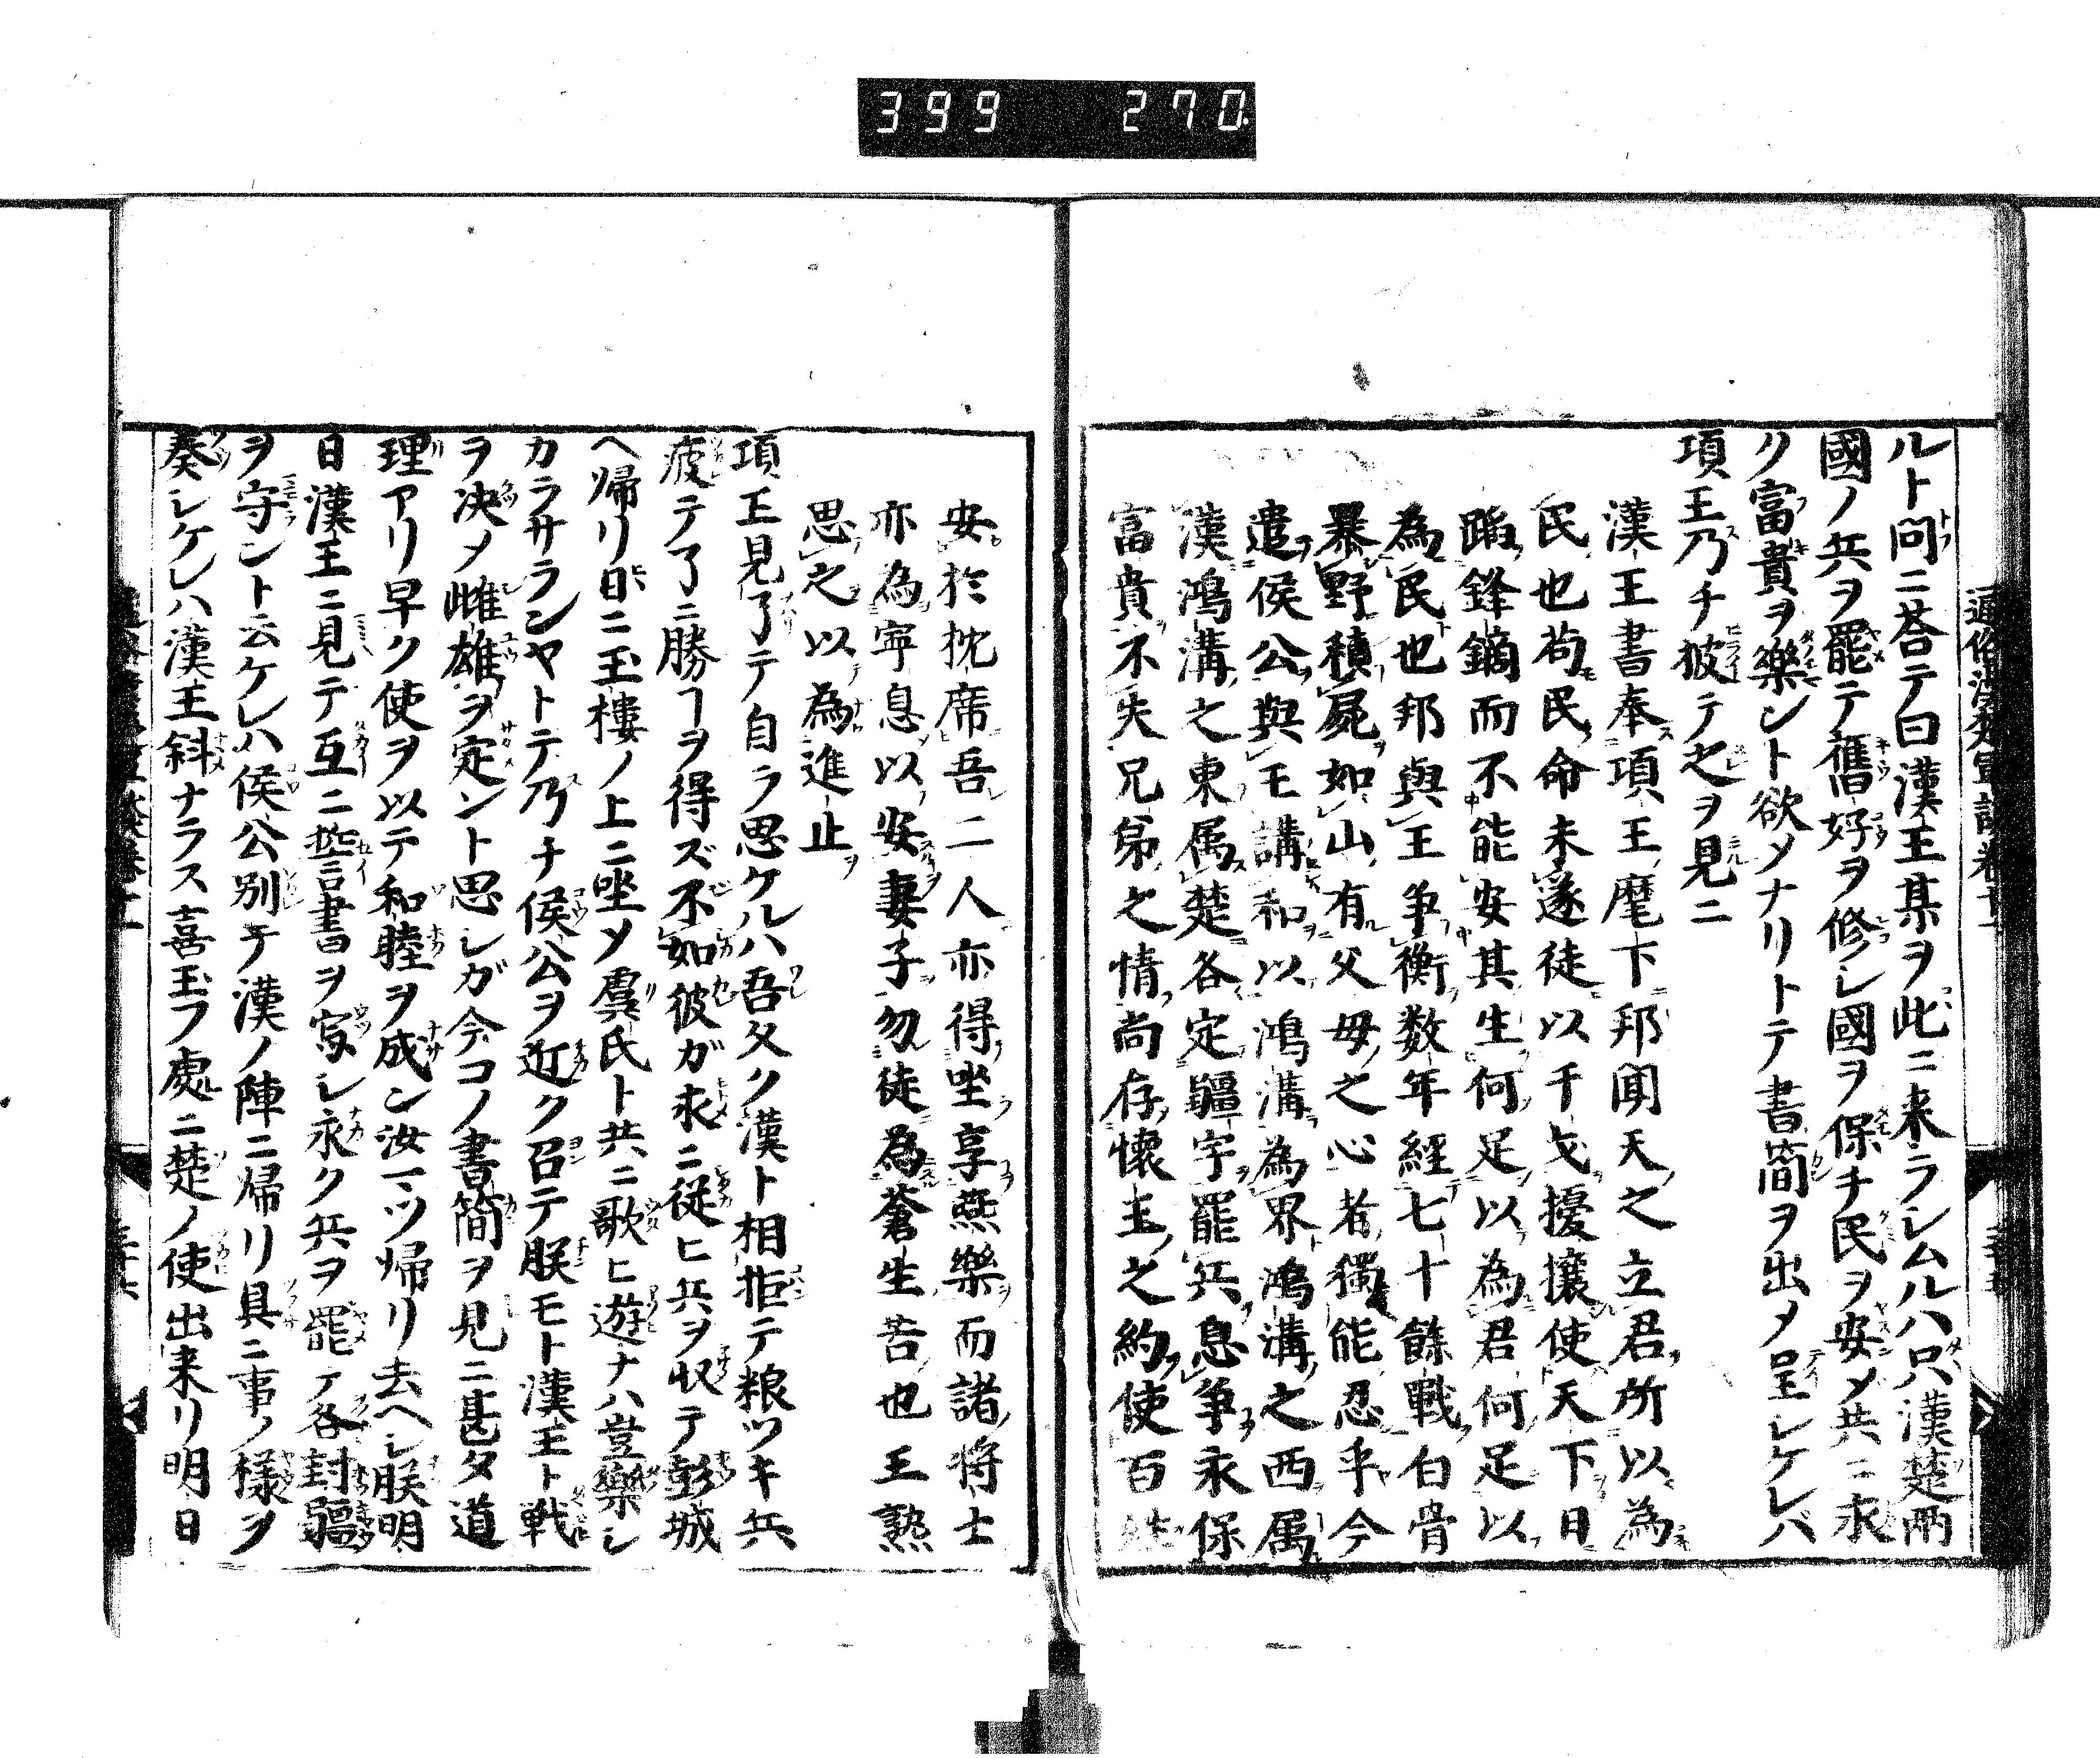 399 270
ルト問ニ荅テ曰漢王某ヲ此ニ来ラシムルハ只漢楚兩
國ノ兵ヲ罷テ舊好ヲ修シ國ヲ保チ民ヲ安メ共ニ永
ク富貴ヲ樂ント欲メナリトテ書簡ヲ出メ呈シケレバ
項王乃チ披テ之ヲ見ニ
漢王書奉項王麾下邦聞天之立君所以為
民也苟民命未遂徒以干戈擾攘使天下日
蹈鋒鏑而不能安其生何足以為君何足以
為民也邦與王争衡数年經七十餘戰白骨
暴野積屍如山有父母之心者獨能忍乎今
遣侯公與王講和以鴻溝為界鴻溝之西属
漢鴻溝之東属楚各定疆宇罷兵息争永保
富貴不失兄弟之情尚存懐王之約使百姓
安於枕席吾二人亦得坐享燕樂而諸将士
亦為寧息以安妻子勿徒為蒼生苦也王熟
思之以為進止
項王見了テ自ラ思ケルハ吾久ク漢ト相拒テ粮ツキ兵
疲テ了ニ勝ヿヲ得ズ不如彼ガ求ニ従ヒ兵ヲ収テ彭城
ヘ帰リ日ニ玉樓ノ上ニ坐メ虞氏ト共ニ歌ヒ遊ナハ豈樂シ
カラサランヤトテ乃チ侯公ヲ近ク召テ朕モト漢王ト戦
ヲ决メ雌雄ヲ定ント思シガ今コノ書簡ヲ見ニ甚タ道
理アリ早ク使ヲ以テ和睦ヲ成ン汝一ツ帰リ去ヘシ朕明
日漢王ニ見テ互ニ誓書ヲ寫シ永ク兵ヲ罷テ各封疆
ヲ守ント云ケレハ侯公別テ漢ノ陣ニ帰リ具ニ事ノ樣ヲ
奏シケレハ漢王斜ナラス喜玉フ處ニ楚ノ使出来リ明日